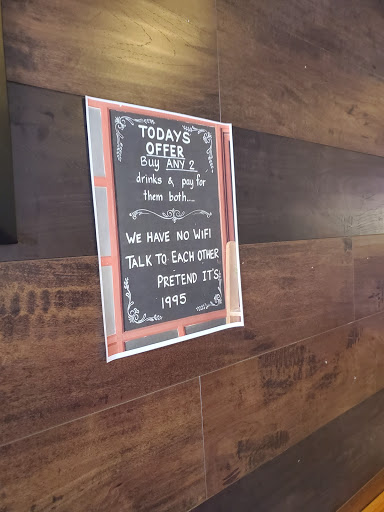 TODAYS
OFFER
BUY ANY 2
drinks & pay for
them both....
WE HAVE NO WIFI
TALK TO EACH OTHER
PRETEND IT'S
1995